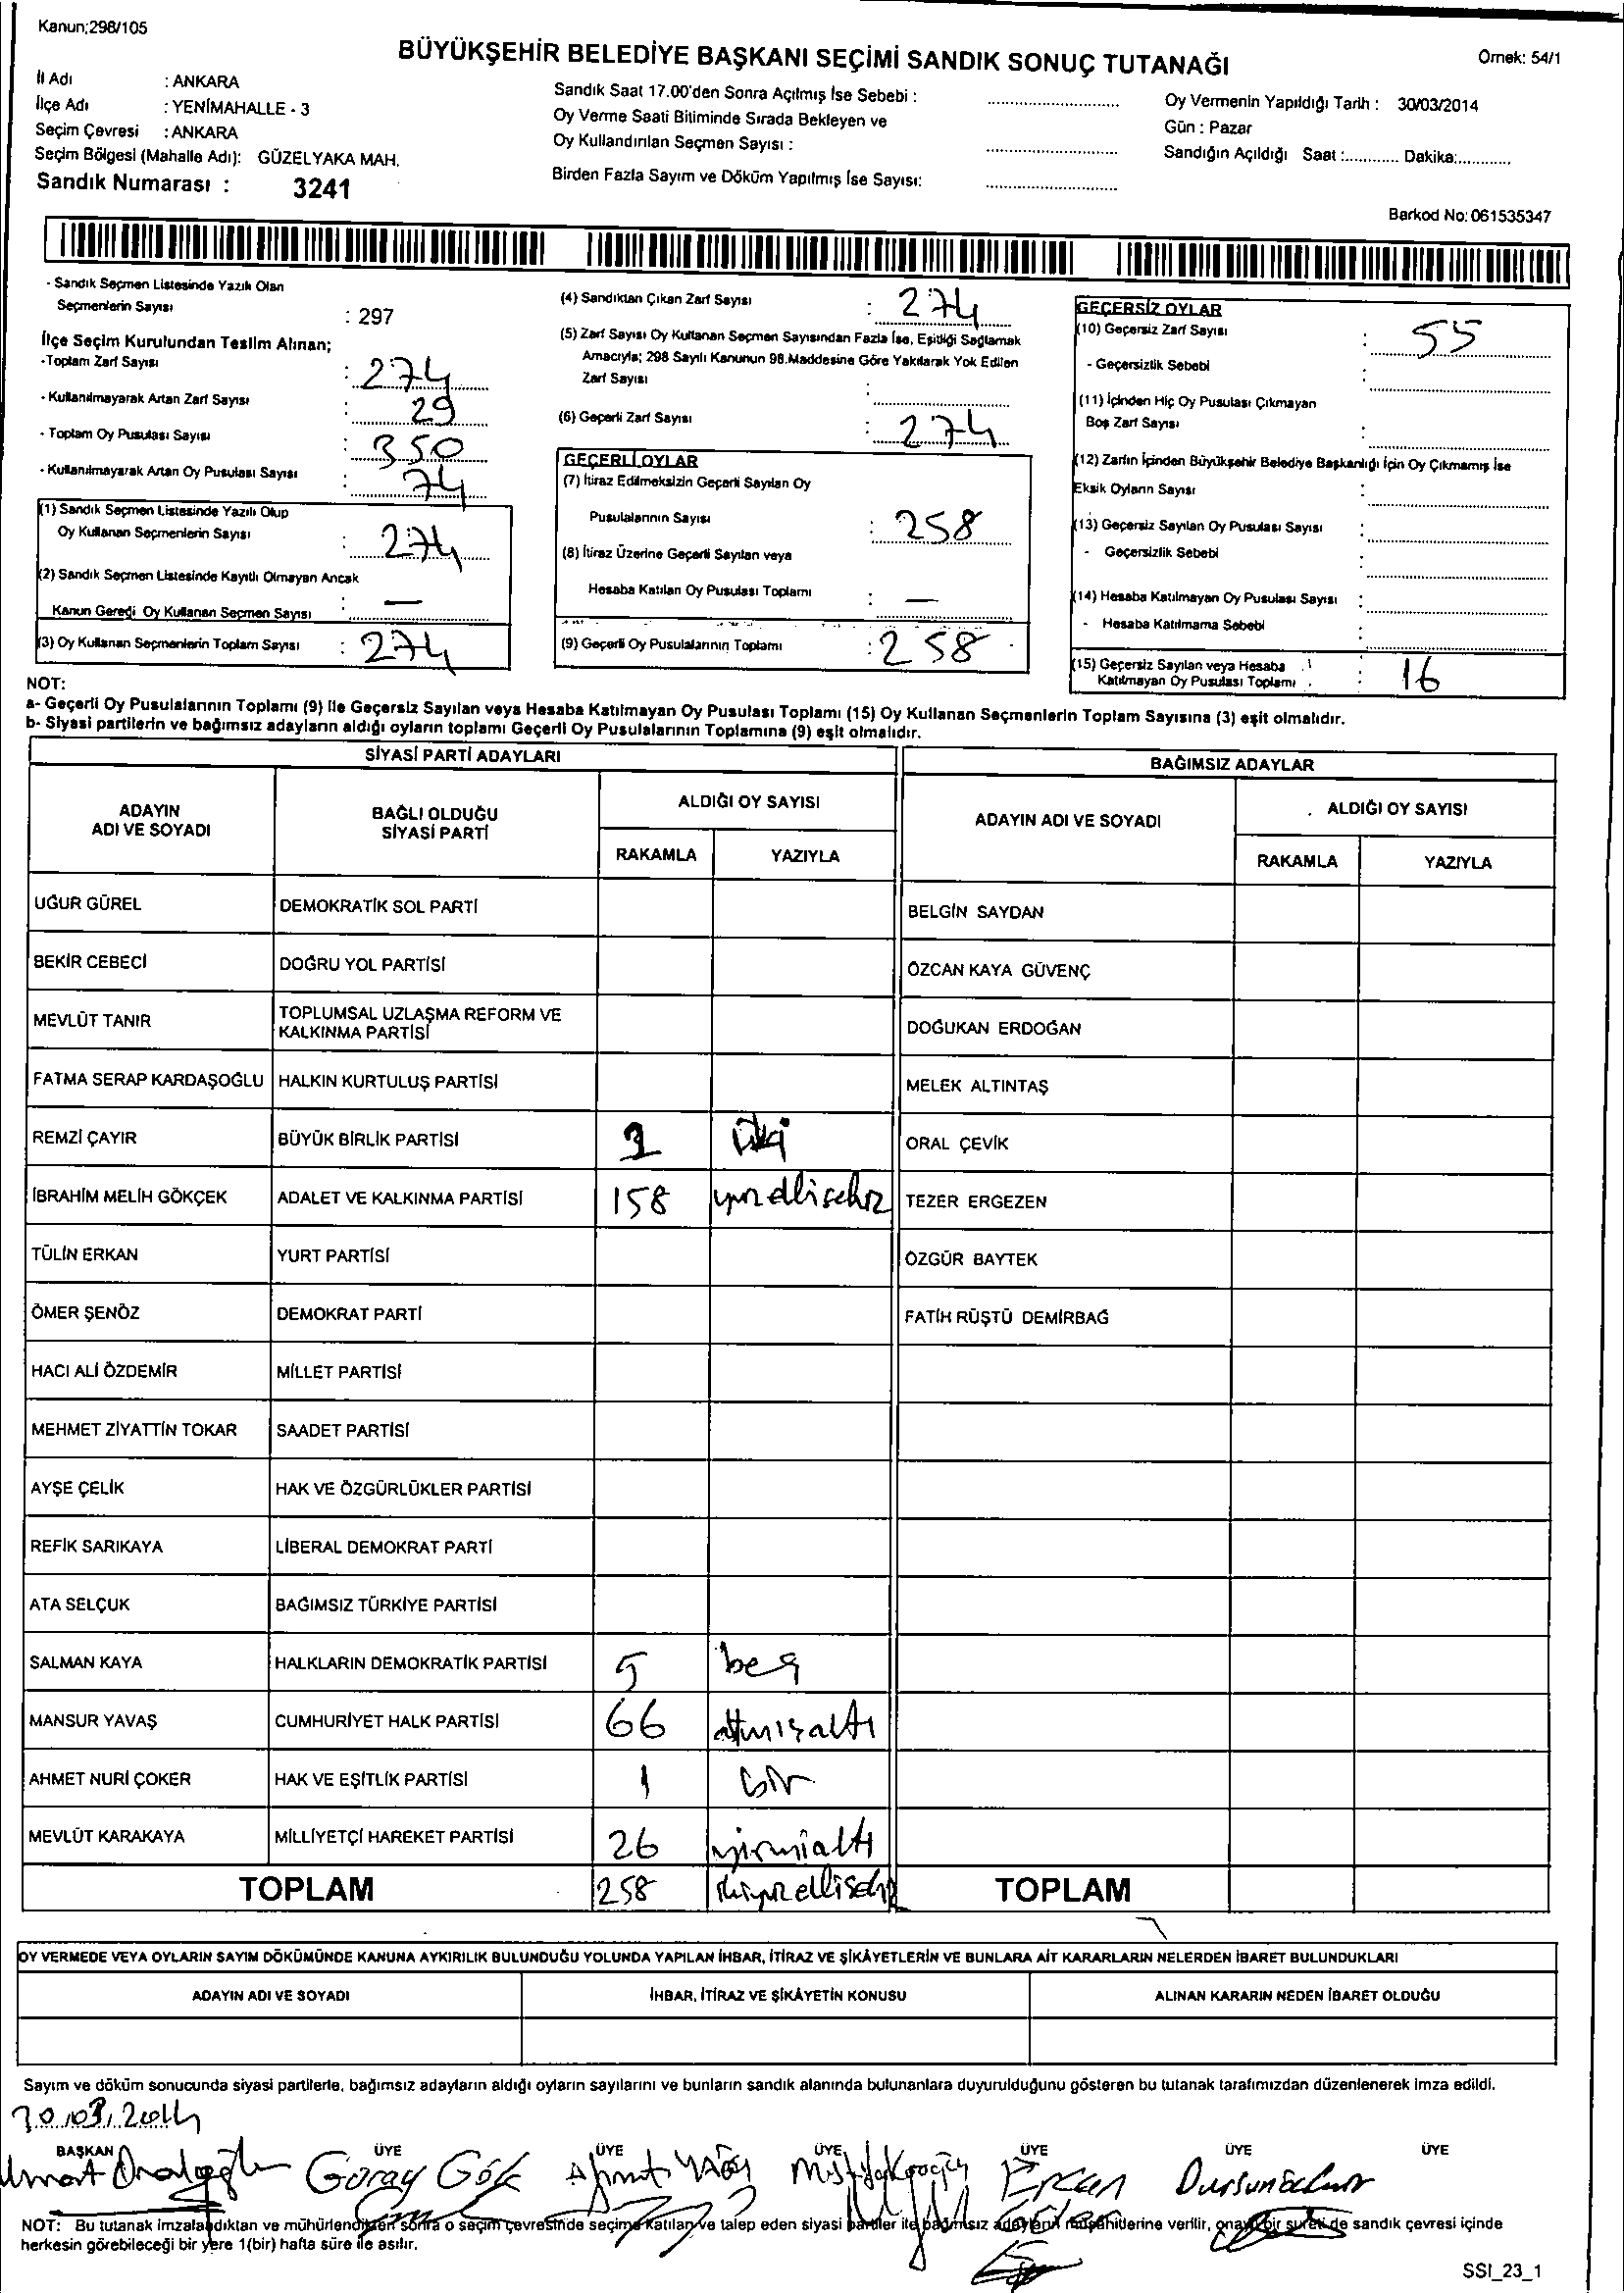 Kanun;298/105
BÜYÜKŞEHİR BELEDİYE BAŞKANI SEÇİMİ SANDIK SONUÇ TUTANAĞI
Örnek: 54/1
İl Adı : ANKARA
İlçe Adı : YENİMAHALLE - 3
Seçim Çevresi : ANKARA
Seçim Bölgesi (Mahalle Adı): GÜZELYAKA MAH.
Sandık Numarası : 3241
Sandık Saat 17.00'den Sonra Açılmış İse Sebebi :
Oy Verme Saati Bitiminde Sırada Bekleyen ve
Oy Kullandırılan Seçmen Sayısı :
Birden Fazla Sayım ve Döküm Yapılmış İse Sayısı:
Oy Vermenin Yapıldığı Tarih : 30/03/2014
Gün : Pazar
Sandığın Açıldığı Saat :............ Dakika:............
Barkod No: 061535347
- Sandık Seçmen Listesinde Yazılı Olan
Seçmenlerin Sayısı : 297
İlçe Seçim Kurulundan Teslim Alınan;
-Toplam Zarf Sayısı : 274
- Kullanılmayarak Artan Zarf Sayısı : 29
- Toplam Oy Pusulası Sayısı : 350
- Kullanılmayarak Artan Oy Pusulası Sayısı : 74
(1) Sandık Seçmen Listesinde Yazılı Olup
Oy Kullanan Seçmenlerin Sayısı : 274
(2) Sandık Seçmen Listesinde Kayıtlı Olmayan Ancak
Kanun Gereği Oy Kullanan Seçmen Sayısı : —
(3) Oy Kullanan Seçmenlerin Toplam Sayısı : 274
(4) Sandıktan Çıkan Zarf Sayısı : 274
(5) Zarf Sayısı Oy Kullanan Seçmen Sayısından Fazla İse, Eşitliği Sağlamak
Amacıyla; 298 Sayılı Kanunun 98.Maddesine Göre Yakılarak Yok Edilen
Zarf Sayısı :
(6) Geçerli Zarf Sayısı : 274
GEÇERLİ OYLAR
(7) İtiraz Edilmeksizin Geçerli Sayılan Oy
Pusulalarının Sayısı : 258
(8) İtiraz Üzerine Geçerli Sayılan veya
Hesaba Katılan Oy Pusulası Toplamı : —
(9) Geçerli Oy Pusulalarının Toplamı : 258
GEÇERSİZ OYLAR
(10) Geçersiz Zarf Sayısı : 55
- Geçersizlik Sebebi :
(11) İçinden Hiç Oy Pusulası Çıkmayan
Boş Zarf Sayısı :
(12) Zarfın İçinden Büyükşehir Belediye Başkanlığı İçin Oy Çıkmamış İse
Eksik Oyların Sayısı :
(13) Geçersiz Sayılan Oy Pusulası Sayısı :
- Geçersizlik Sebebi :
(14) Hesaba Katılmayan Oy Pusulası Sayısı :
- Hesaba Katılmama Sebebi :
(15) Geçersiz Sayılan veya Hesaba
Katılmayan Oy Pusulası Toplamı : 16
NOT:
a- Geçerli Oy Pusulalarının Toplamı (9) İle Geçersiz Sayılan veya Hesaba Katılmayan Oy Pusulası Toplamı (15) Oy Kullanan Seçmenlerin Toplam Sayısına (3) eşit olmalıdır.
b- Siyasi partilerin ve bağımsız adayların aldığı oyların toplamı Geçerli Oy Pusulalarının Toplamına (9) eşit olmalıdır.
SİYASİ PARTİ ADAYLARI BAĞIMSIZ ADAYLAR
ADAYIN ADI VE SOYADI BAĞLI OLDUĞU SİYASİ PARTİ ALDIĞI OY SAYISI ADAYIN ADI VE SOYADI ALDIĞI OY SAYISI
RAKAMLA YAZIYLA RAKAMLA YAZIYLA
UĞUR GÜREL DEMOKRATİK SOL PARTİ BELGİN SAYDAN
BEKİR CEBECİ DOĞRU YOL PARTİSİ ÖZCAN KAYA GÜVENÇ
MEVLÜT TANIR TOPLUMSAL UZLAŞMA REFORM VE KALKINMA PARTİSİ DOĞUKAN ERDOĞAN
FATMA SERAP KARDAŞOĞLU HALKIN KURTULUŞ PARTİSİ MELEK ALTINTAŞ
REMZİ ÇAYIR BÜYÜK BİRLİK PARTİSİ 2 iki ORAL ÇEVİK
İBRAHİM MELİH GÖKÇEK ADALET VE KALKINMA PARTİSİ 158 yüzellisekiz TEZER ERGEZEN
TÜLİN ERKAN YURT PARTİSİ ÖZGÜR BAYTEK
ÖMER ŞENÖZ DEMOKRAT PARTİ FATİH RÜŞTÜ DEMİRBAĞ
HACI ALİ ÖZDEMİR MİLLET PARTİSİ
MEHMET ZİYATTİN TOKAR SAADET PARTİSİ
AYŞE ÇELİK HAK VE ÖZGÜRLÜKLER PARTİSİ
REFİK SARIKAYA LİBERAL DEMOKRAT PARTİ
ATA SELÇUK BAĞIMSIZ TÜRKİYE PARTİSİ
SALMAN KAYA HALKLARIN DEMOKRATİK PARTİSİ 5 beş
MANSUR YAVAŞ CUMHURİYET HALK PARTİSİ 66 altmışaltı
AHMET NURİ ÇOKER HAK VE EŞİTLİK PARTİSİ 1 bir
MEVLÜT KARAKAYA MİLLİYETÇİ HAREKET PARTİSİ 26 yirmialtı
TOPLAM 258 ikiyüzellisekiz TOPLAM
OY VERMEDE VEYA OYLARIN SAYIM DÖKÜMÜNDE KANUNA AYKIRILIK BULUNDUĞU YOLUNDA YAPILAN İHBAR, İTİRAZ VE ŞİKÂYETLERİN VE BUNLARA AİT KARARLARIN NELERDEN İBARET BULUNDUKLARI
ADAYIN ADI VE SOYADI İHBAR, İTİRAZ VE ŞİKÂYETİN KONUSU ALINAN KARARIN NEDEN İBARET OLDUĞU
Sayım ve döküm sonucunda siyasi partilerle, bağımsız adayların aldığı oyların sayılarını ve bunların sandık alanında bulunanlara duyurulduğunu gösteren bu tutanak tarafımızdan düzenlenerek imza edildi.
30.03.2014
BAŞKAN ÜYE ÜYE ÜYE ÜYE ÜYE ÜYE
Goray Gök Ahmet Ercan Dursun
NOT: Bu tutanak imzalandıktan ve mühürlendikten sonra o seçim çevresinde seçime katılan ve talep eden siyasi partiler ile bağımsız adayların müşahitlerine verilir, onaylı bir sureti de sandık çevresi içinde
herkesin görebileceği bir yere 1(bir) hafta süre ile asılır.
SSI_23_1